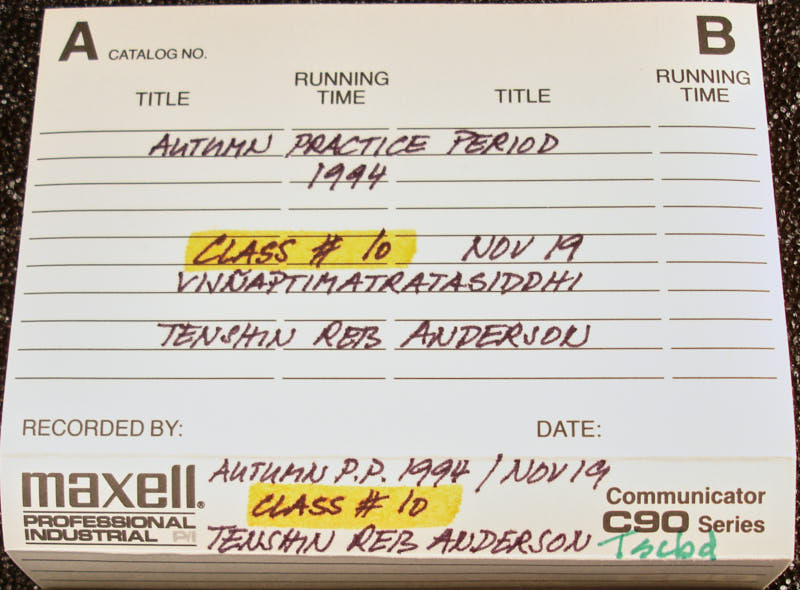 A CATALOG NO. B
TITLE RUNNING TIME TITLE RUNNING TIME
AUTUMN PRACTICE PERIOD
1994
CLASS # 10 NOV 19
VIJÑAPTIMATRATASIDDHI
TENSHIN REB ANDERSON
RECORDED BY: DATE:
maxell® AUTUMN P.P. 1994 / NOV 19
PROFESSIONAL CLASS # 10 Communicator
INDUSTRIAL P/I TENSHIN REB ANDERSON C90 Series
Tscbd